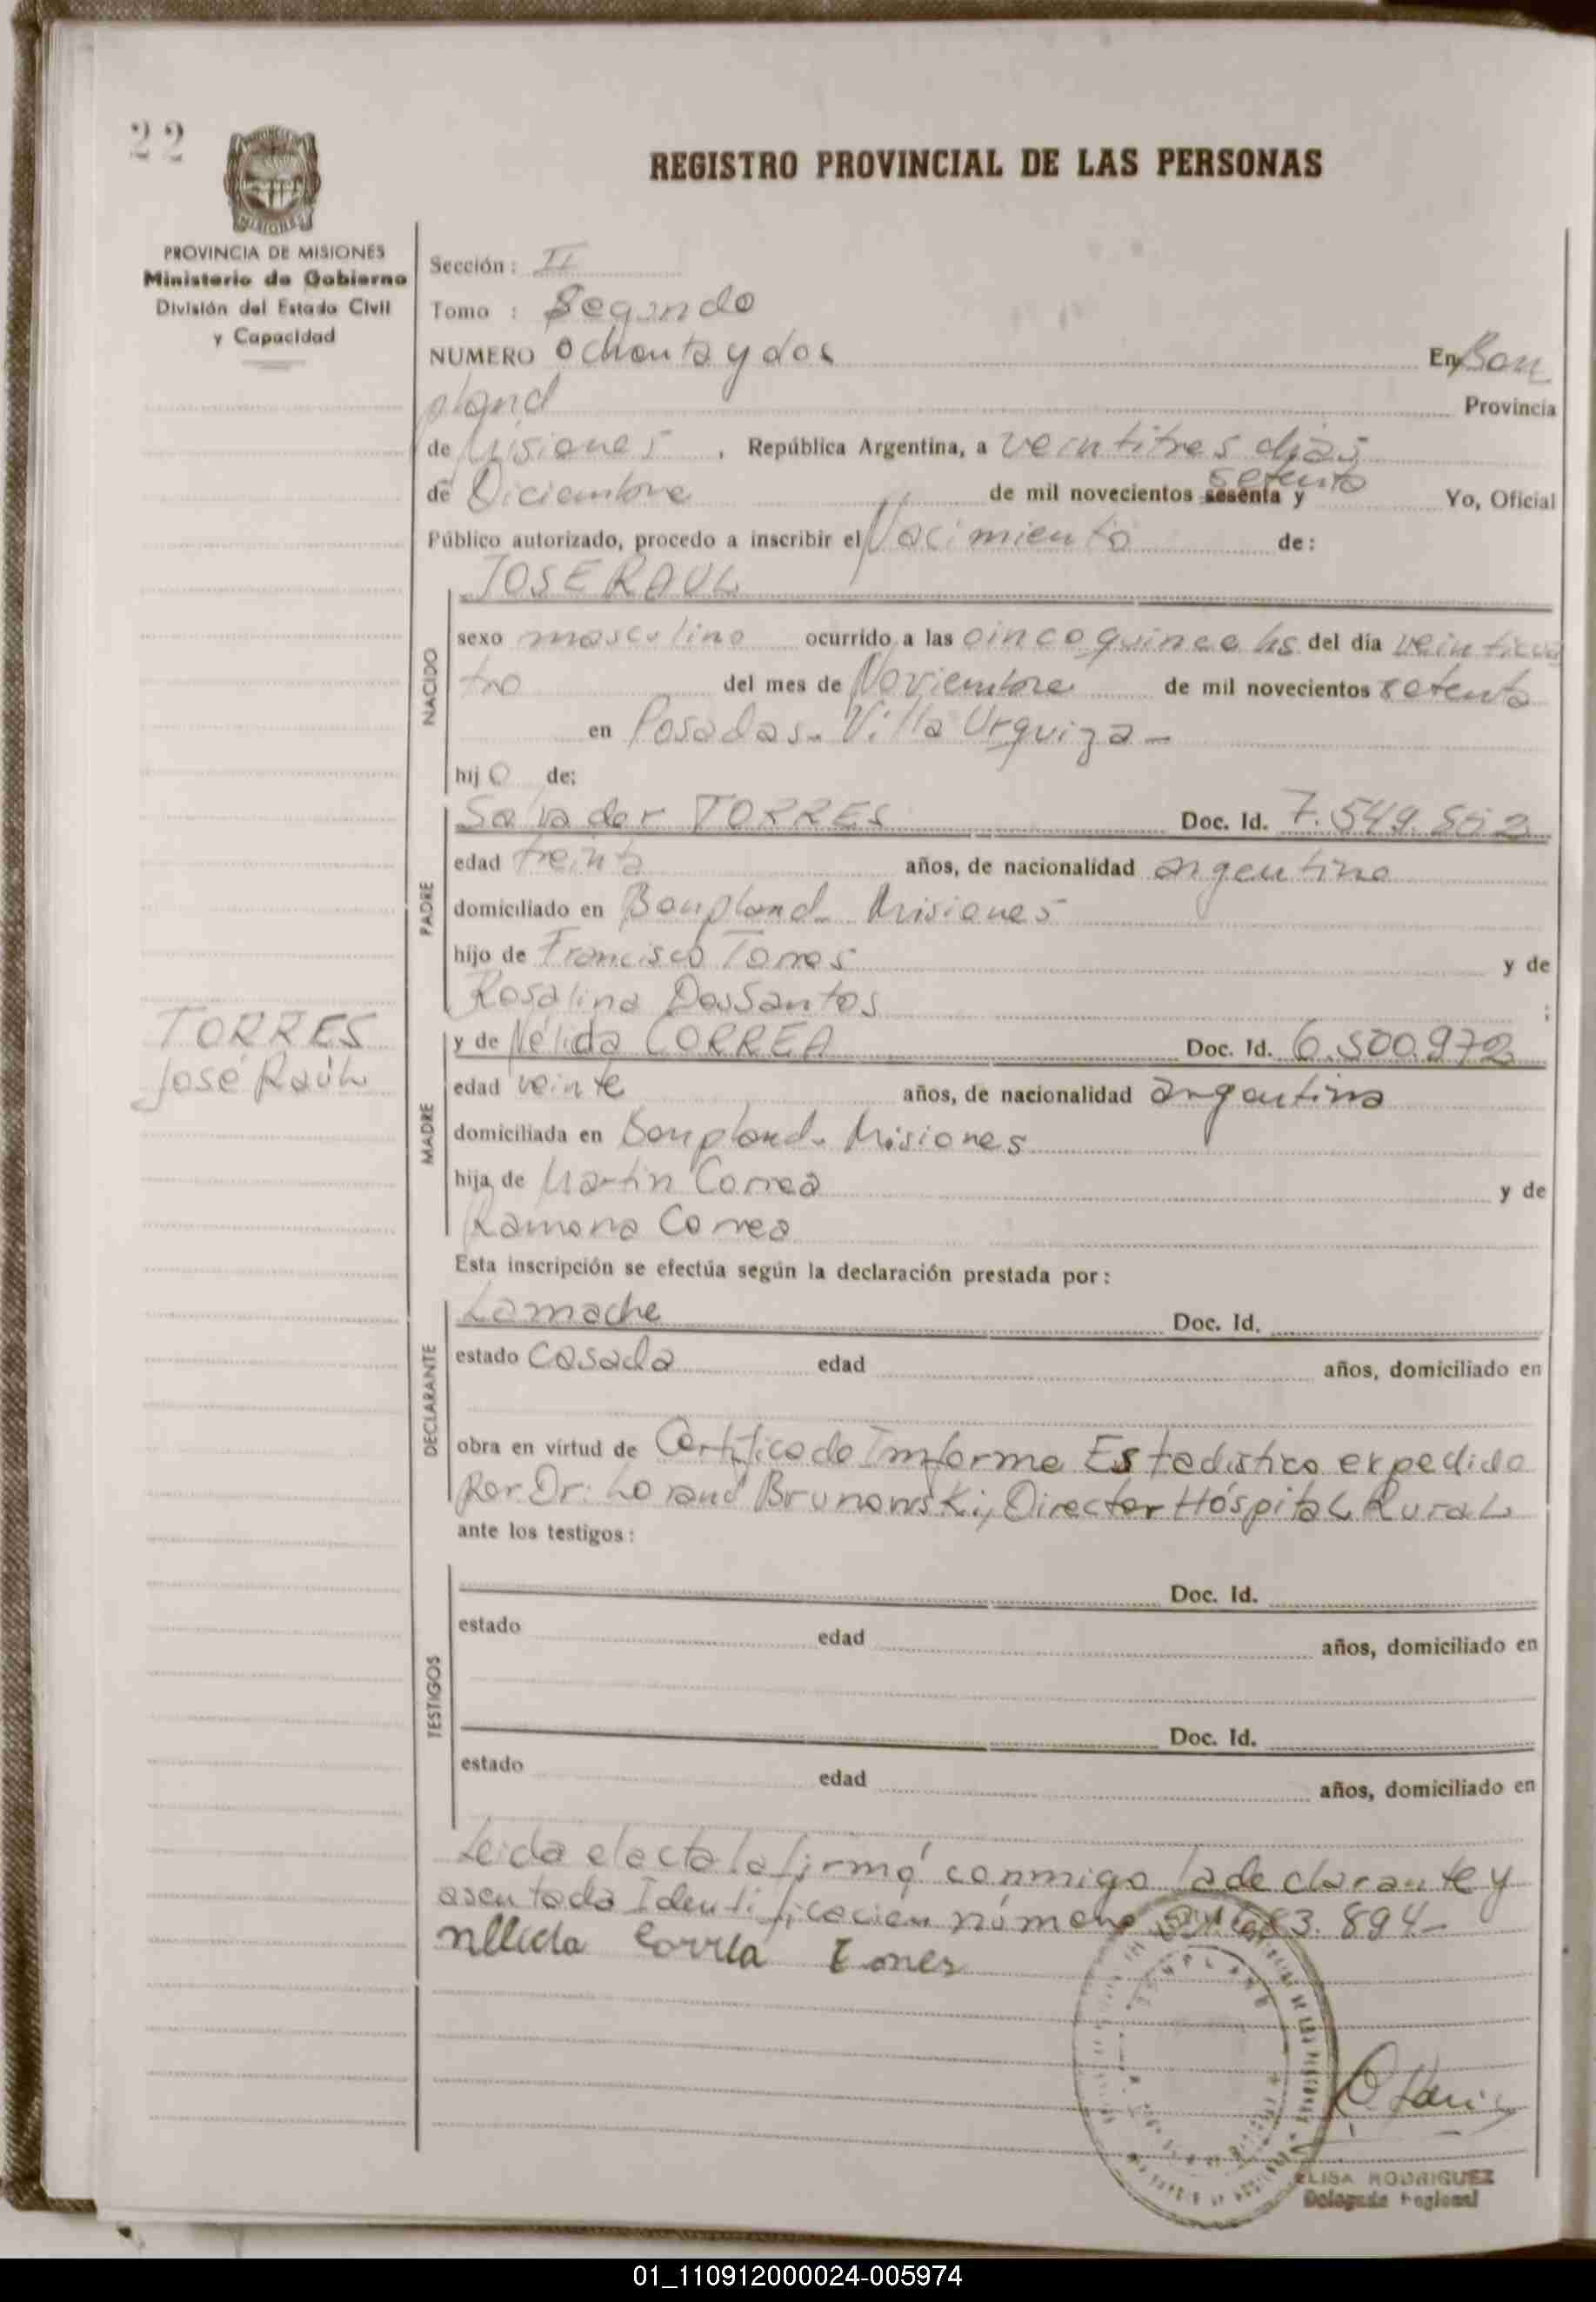 22
REGISTRO PROVINCIAL DE LAS PERSONAS
PROVINCIA DE MISIONES
Ministerio de Gobierno
División del Estado Civil
y Capacidad
Sección: II
Tomo : Segundo
NUMERO ochenta y dos En Bon
pland Provincia
de Misiones , República Argentina, a veintitres dias
setenta
de Diciembre de mil novecientos sesenta y Yo, Oficial
Público autorizado, procedo a inscribir el Nacimiento de:
JOSE RAUL
NACIDO
sexo masculino ocurrido a las cinco quince hs del día veinticua
tro del mes de Noviembre de mil novecientos setenta
en Posadas. Villa Urquiza -
hijo de:
PADRE
Salvador TORRES Doc. Id. 7.549.
edad treinta años, de nacionalidad argentino
domiciliado en Bonpland. Misiones
hijo de Francisco Torres y de
Rosalina DosSantos ;
TORRES
José Raúl
MADRE
y de Nélida CORREA Doc. Id. 6.500.972
edad veinte años, de nacionalidad argentina
domiciliada en Bonpland. Misiones
hija de Martin Correa y de
Ramona Correa
Esta inscripción se efectúa según la declaración prestada por:
DECLARANTE
La madre Doc. Id.
estado casada edad años, domiciliado en
obra en virtud de Certificado Imforme Estadistico expedido
Por Dr: Brunowski, Director Hóspital Rural
ante los testigos:
TESTIGOS
Doc. Id.
estado edad años, domiciliado en
Doc. Id.
estado edad años, domiciliado en
Leida el acta la firmó conmigo la declarante y
asentada Identificacion número 83.894-
nelida Correa
ELISA RODRIGUEZ
Delegada Regional
01_110912000024-005974